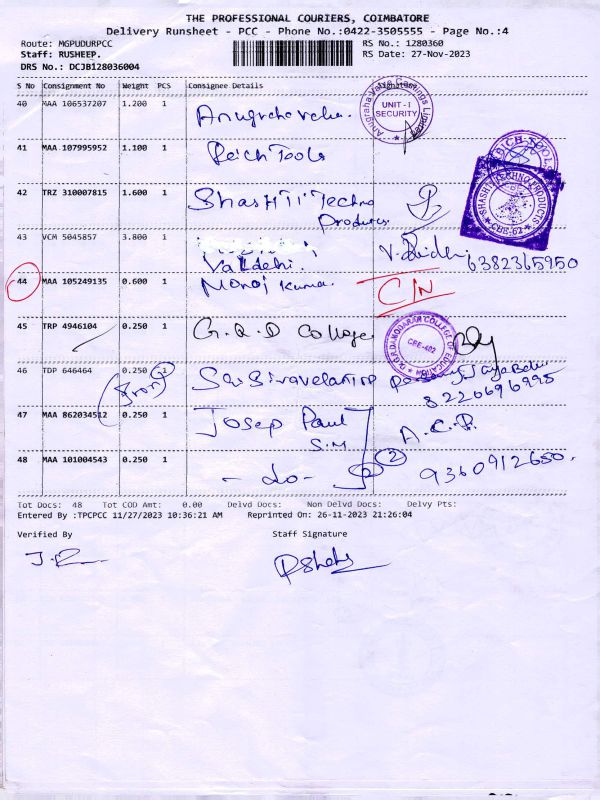 THE PROFESSIONAL COURIERS, COIMBATORE
Delivery Runsheet - PCC - Phone No.:0422-3505555 - Page No.:4
Route: MGPUDURPCC
RS No.: 1280360
Staff: RUSHEEP.
RS Date: 27-Nov-2023
DRS No.: DCJB128036004
S No Consignment No Weight PCS Consignee Details
40 MAA 106537207 1.200 1
UNIT-I
SECURITY
41 MAA 107995952 1.100 1 Reich Tools
42 TRZ 310007815 1.600 1 Shashti Techno
Products
SHASHTI TECHNO PRODUCTS
CBE-62
43 VCM 5045857 3.800 1
Vaidehi.
6382365950
44 MAA 105249135 0.600 1 Manoj Kumar
C/N
45 TRP 4946104 0.250 1 G.R.D College
CBE-402
46 TDP 646464 0.250 1
8220696995
47 MAA 862034512 0.250 1 Josep Paul
S.M
A.C.P.
48 MAA 101004543 0.250 1 - do -
2
9360912650.
Tot Docs: 48 Tot COD Amt: 0.00 Delvd Docs: Non Delvd Docs: Delvy Pts:
Entered By :TPCPCC 11/27/2023 10:36:21 AM Reprinted On: 26-11-2023 21:26:04
Verified By Staff Signature